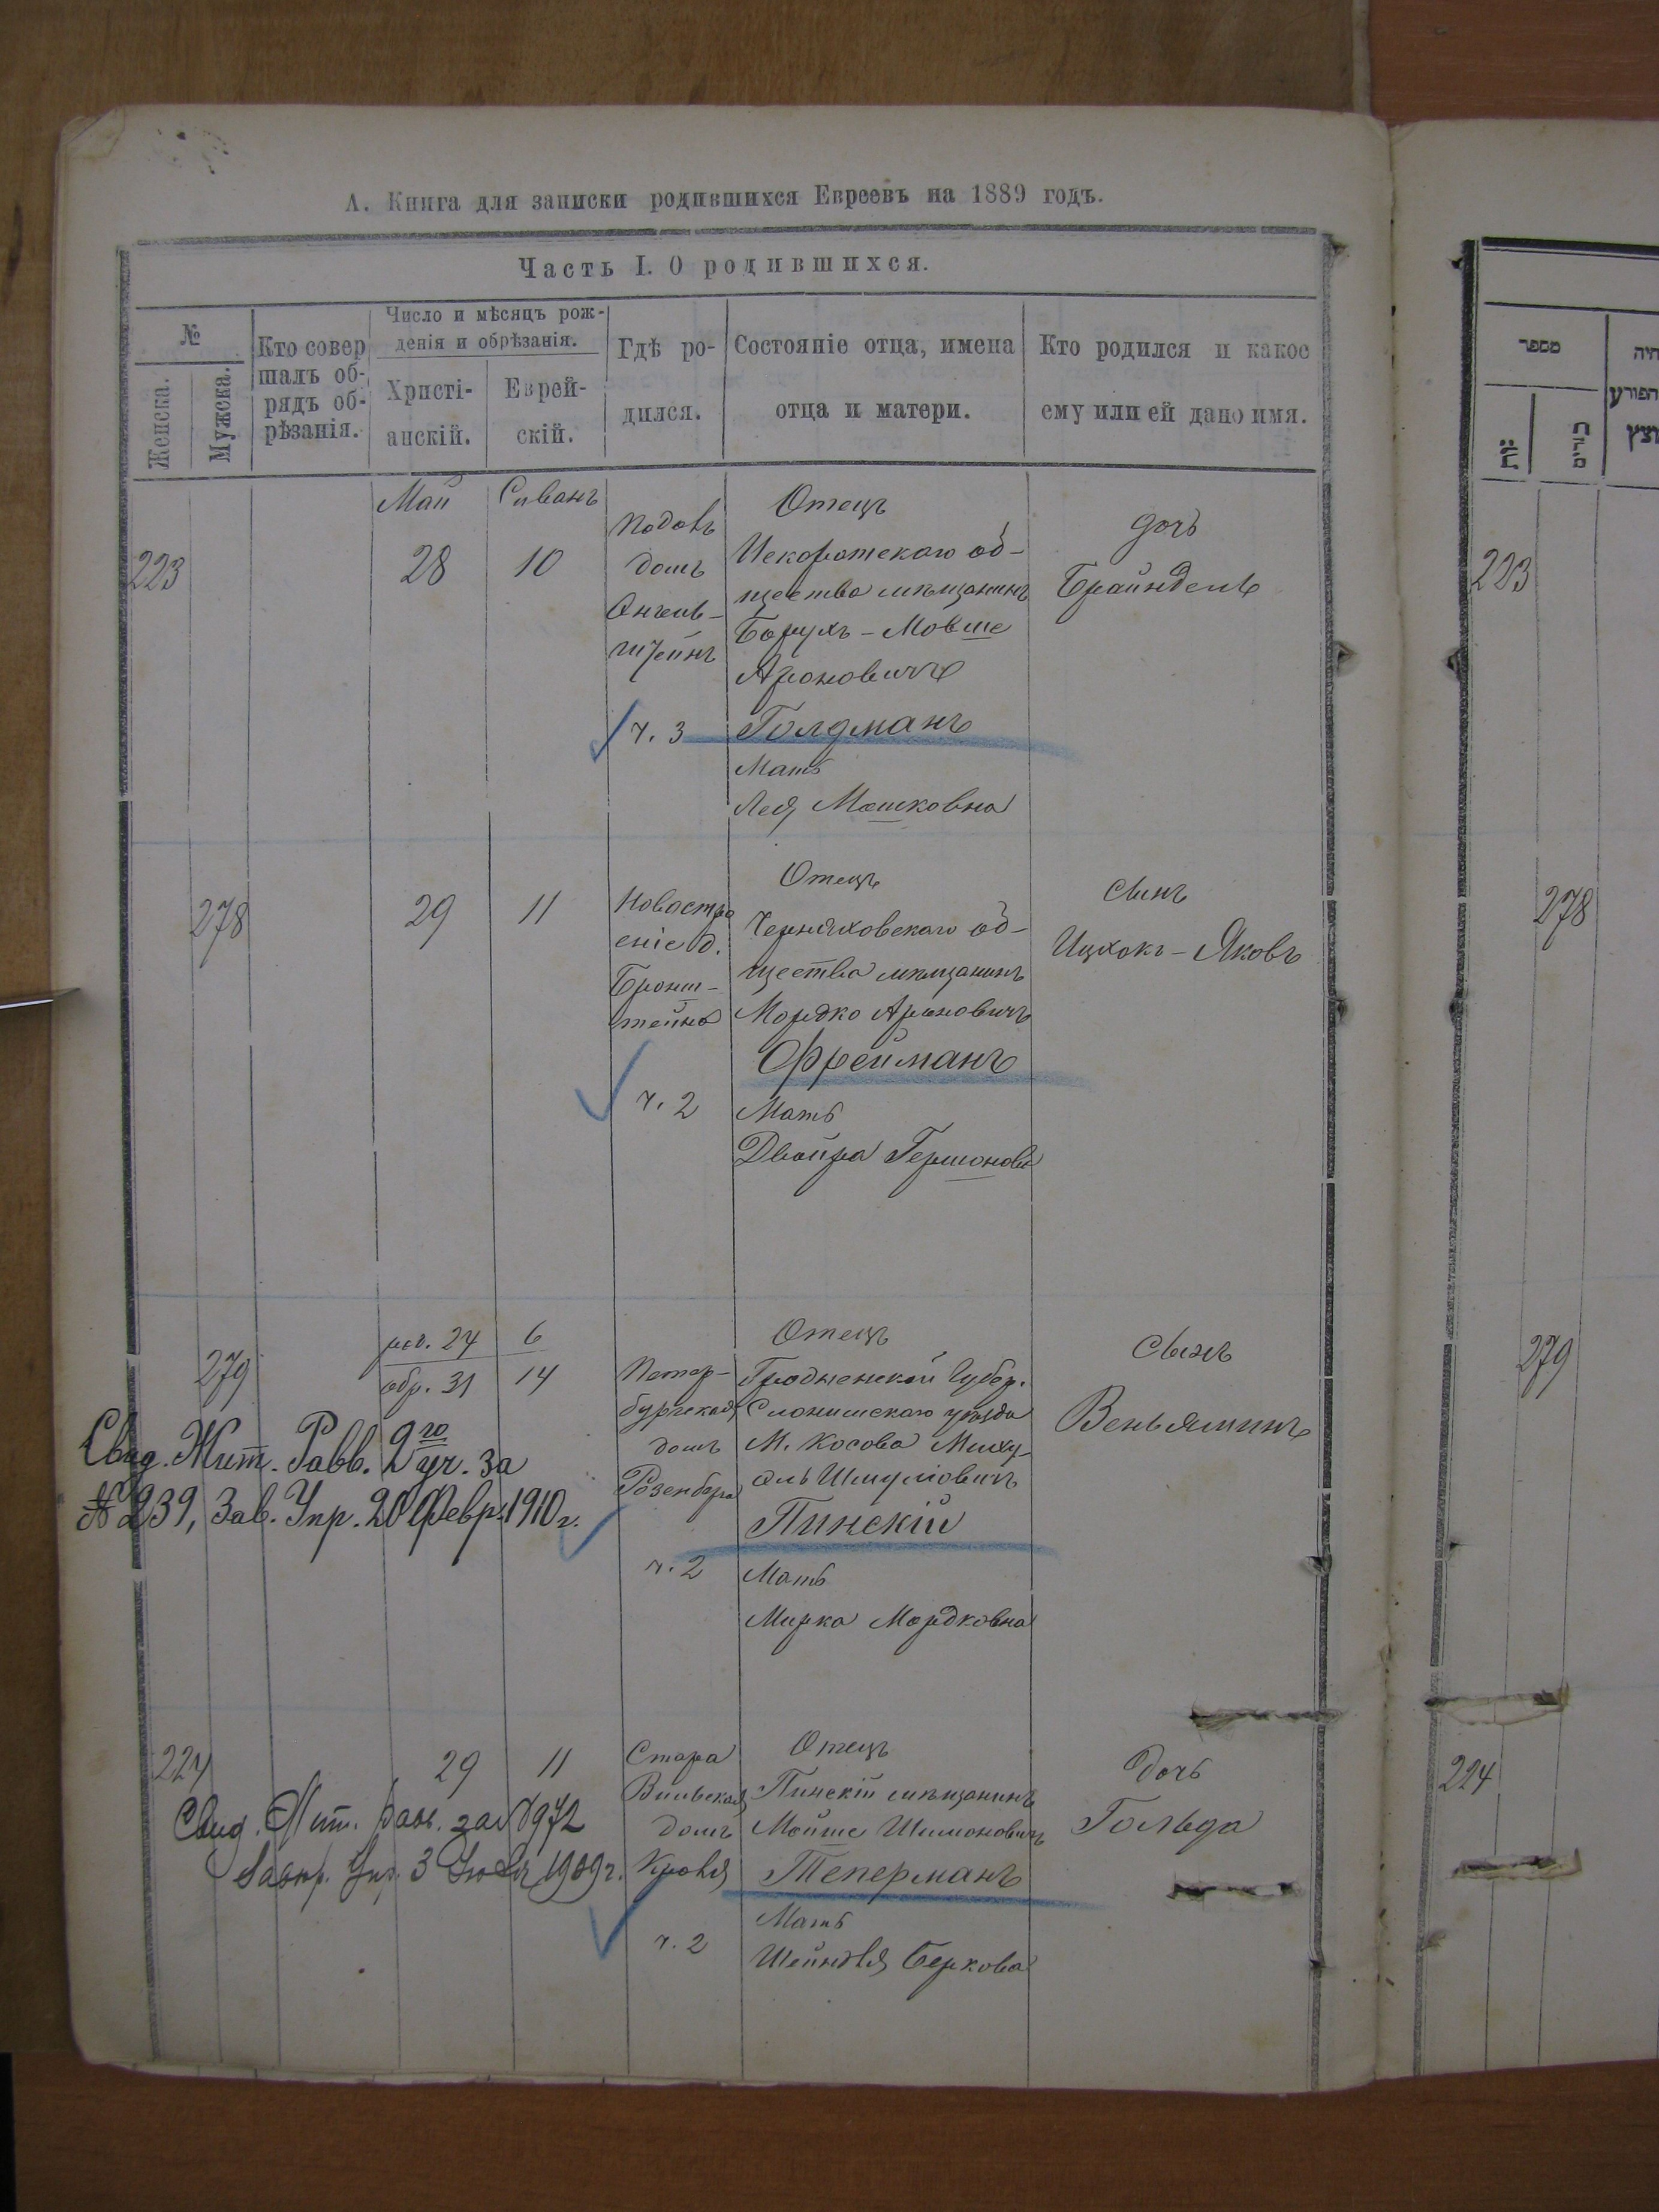 А. Книга для записки родившихся Евреевъ на 1889 годъ.
Часть I. О родившихся.
№
Женска.
Мужска.
Кто совер
шалъ об-
рядъ об-
рѣзанія.
Число и мѣсяцъ рож-
денія и обрѣзанія.
Христі-
анскій.
Еврей-
скій.
Гдѣ ро-
дился.
Состояніе отца, имена
отца и матери.
Кто родился и какое
ему или ей дано имя.
Май
Сиванъ
223
28
10
домъ
ч. 3
Отецъ
Искоростскаго об-
щества мѣщанинъ
Борухъ-Мовше
Ароновичъ
Голдманъ
Мать
Лея Мошковна
дочь
Брайндель
278
29
11
Новостро
еніе д.
Бронш-
тейна
ч. 2
Отецъ
Черняховскаго об-
щества мѣщанинъ
Мордко Ароновичъ
Фрейманъ
Мать
Двойра Гершонова
сынъ
Ицхокъ-Яковъ
279
род. 24
обр. 31
6
14
Петер-
бургская
домъ
Розенберга
ч. 2
Отецъ
Гродненской Губер.
Слонимскаго уѣзда
М. Косова Миху-
эль Шмуліовичъ
Пинскій
Мать
Мирка Мордковна
Сынъ
Веньяминъ
Свид. Жит. Равв. 2го уч. за
№ 239, Зав. Упр. 20 Февр. 1910 г.
224
29
11
Стара
Вильская
домъ
ч. 2
Отецъ
Пинскій мѣщанинъ
Мойше Шимоновичъ
Теперманъ
Мать
Шейндля Беркова
дочь
Гольда
Свид. Жит. Равв. за № 972
Упр. 3 1909 г.
מספר
223
278
279
224